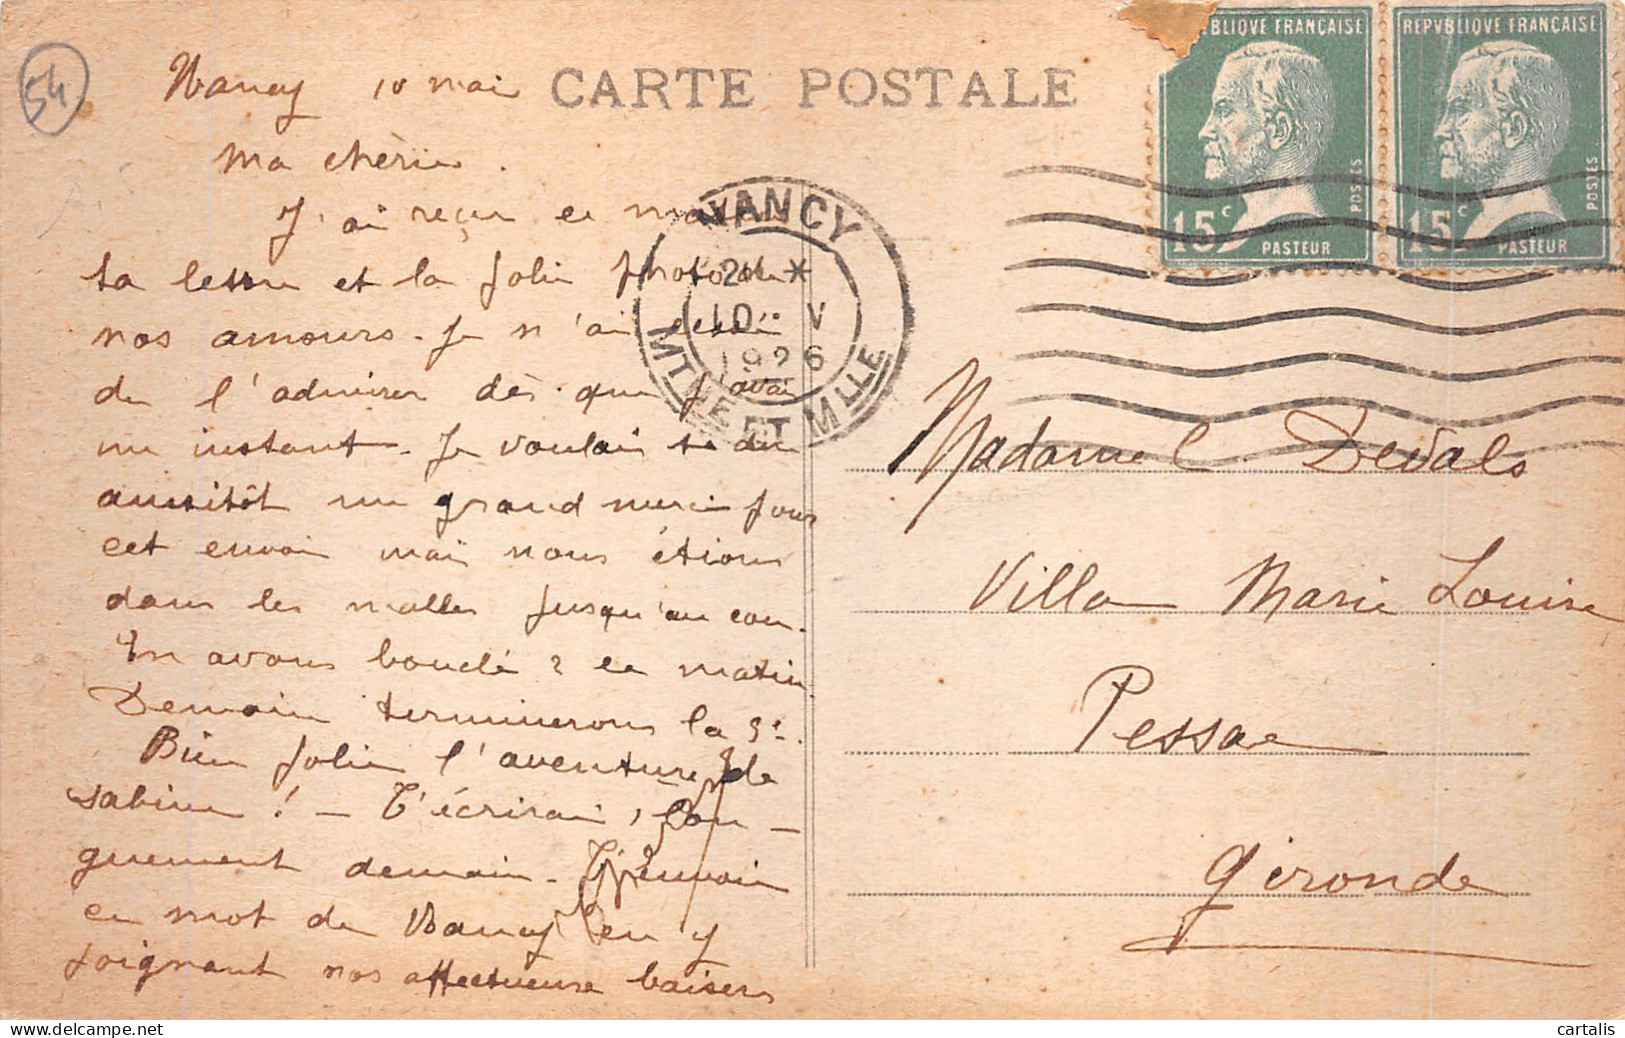 54
Nancy 10 mai
CARTE POSTALE
Ma chérie.
J'ai reçu ce matin
ta lettre et la jolie photo de
nos amours. Je n'ai cessé
de l'admirer dès que j'avai
un instant. Je voulais te dire
aussitôt un grand merci pour
cet envoi mais nous étions
dans les malles jusqu'au cou.
En avons bouclé 2 ce matin.
Demain terminerons la 3e.
Bien jolie l'aventure de
Sabine ! - T'écrirai lon-
guement demain. T'envoie
ce mot de Nancy en y
joignant nos affectueux baisers
NANCY
10 V
1926
MTHE ET MLLE
REPVBLIQVE FRANÇAISE
15c
PASTEUR
POSTES
REPVBLIQVE FRANÇAISE
15c
PASTEUR
POSTES
Madame Devals
Villa Marie Louise
Pessac
Gironde
cartalis
delcampe.net